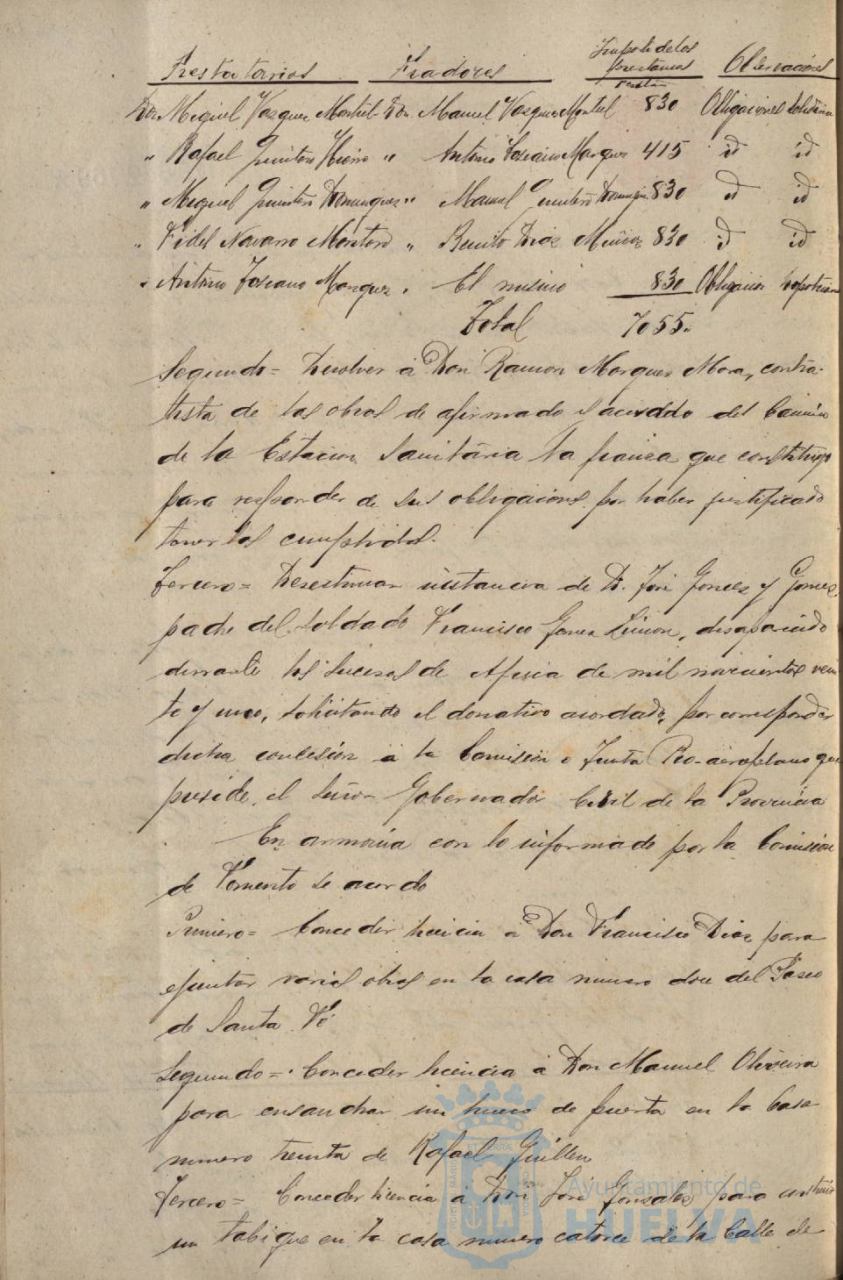 Prestatarios Fiadores Importe de los prestamos Pesetas Observaciones
Don Miguel Vazquez Montiel Don Manuel Vazquez Montiel 830 Obligaciones Solidaria
" Rafael Quintero Hierro " Antonio Toscano Marquez 415 id id
" Miguel Quintero Dominguez " Manuel Quintero Domingz 830 id id
" Fidel Navarro Montoro " Benito Diaz Muñoz 830 id id
" Antonio Toscano Marquez " El mismo 830 Obligacion hipotecaria
Total 7055"
Segundo = Devolver á Don Ramon Marquez Mora, contra-
tista de las obras de afirmado y acerddo del Camino
de la Estacion Sanitária la fianza que constituyó
para responder de sus obligaciones por haber justificado
tenerlas cumplidas.
Tercero = Desestimar instancia de D. José Gomez y Gomez,
padre del soldado Francisco Gomez Limon, desaparecido
durante los sucesos de Africa de mil novecientos vein
te y uno, solicitando el donativo acordado, por corresponder
dicha concesión á la Comisión o Junta Pro-aeroplano que
preside el Señor Gobernador Civil de la Provincia
En armonia con lo informado por la Comision
de Fomento se acordo
Primero = Conceder licencia á Don Francisco Diaz para
ejecutar varias obras en la casa numero doce del Paseo
de Santa Fé
Segundo = Conceder licencia á Don Manuel Oliveira
para ensanchar un hueco de puerta en la Casa
numero treinta de Rafael Guillen
Tercero = Conceder licencia á Don José Gonzalez para construir
un tabique en la casa numero catorce de la Calle de
Ayuntamiento de
HUELVA